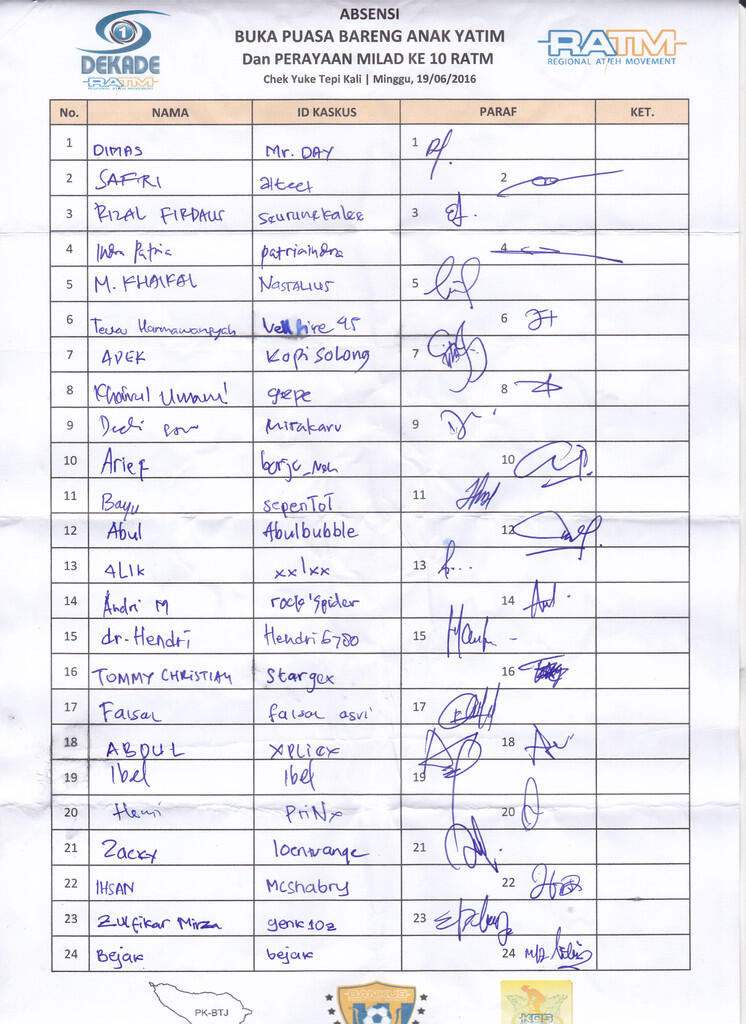 1
DEKADE
RATM
ABSENSI
BUKA PUASA BARENG ANAK YATIM
Dan PERAYAAN MILAD KE 10 RATM
Chek Yuke Tepi Kali | Minggu, 19/06/2016
RATM
REGIONAL ATJEH MOVEMENT
No. NAMA ID KASKUS PARAF KET.
1 DIMAS Mr. DAY 1
2 SAFIRI alteet 2
3 RIZAL FIRDAUS seurunekalee 3
4 Indra Patria patriaindra 4
5 M. KHAIKAL NASTALIUS 5
6 Teuku Harmawansyah Vellfire 45 6
7 APEK Kopi Solong 7
8 Khairul Umami gepe 8
9 Dedi mirakaru 9
10 Arief 10
11 Bayu sepenToT 11
12 Abul Abulbubble 12
13 ALIK xx1xx 13
14 Andri M rock'spider 14
15 dr. Hendri Hendri6780 15
16 TOMMY CHRISTIAN Stargex 16
17 Faisal faisal asvi 17
18 ABDUL XPLICX 18
19 Ibel Ibel 19
20 Henri PriNx 20
21 Zacky locnvange 21
22 IHSAN Mcshabry 22
23 Zulfikar Mirza genk10z 23
24 Bejak bejak 24
PK-BTJ
KGS